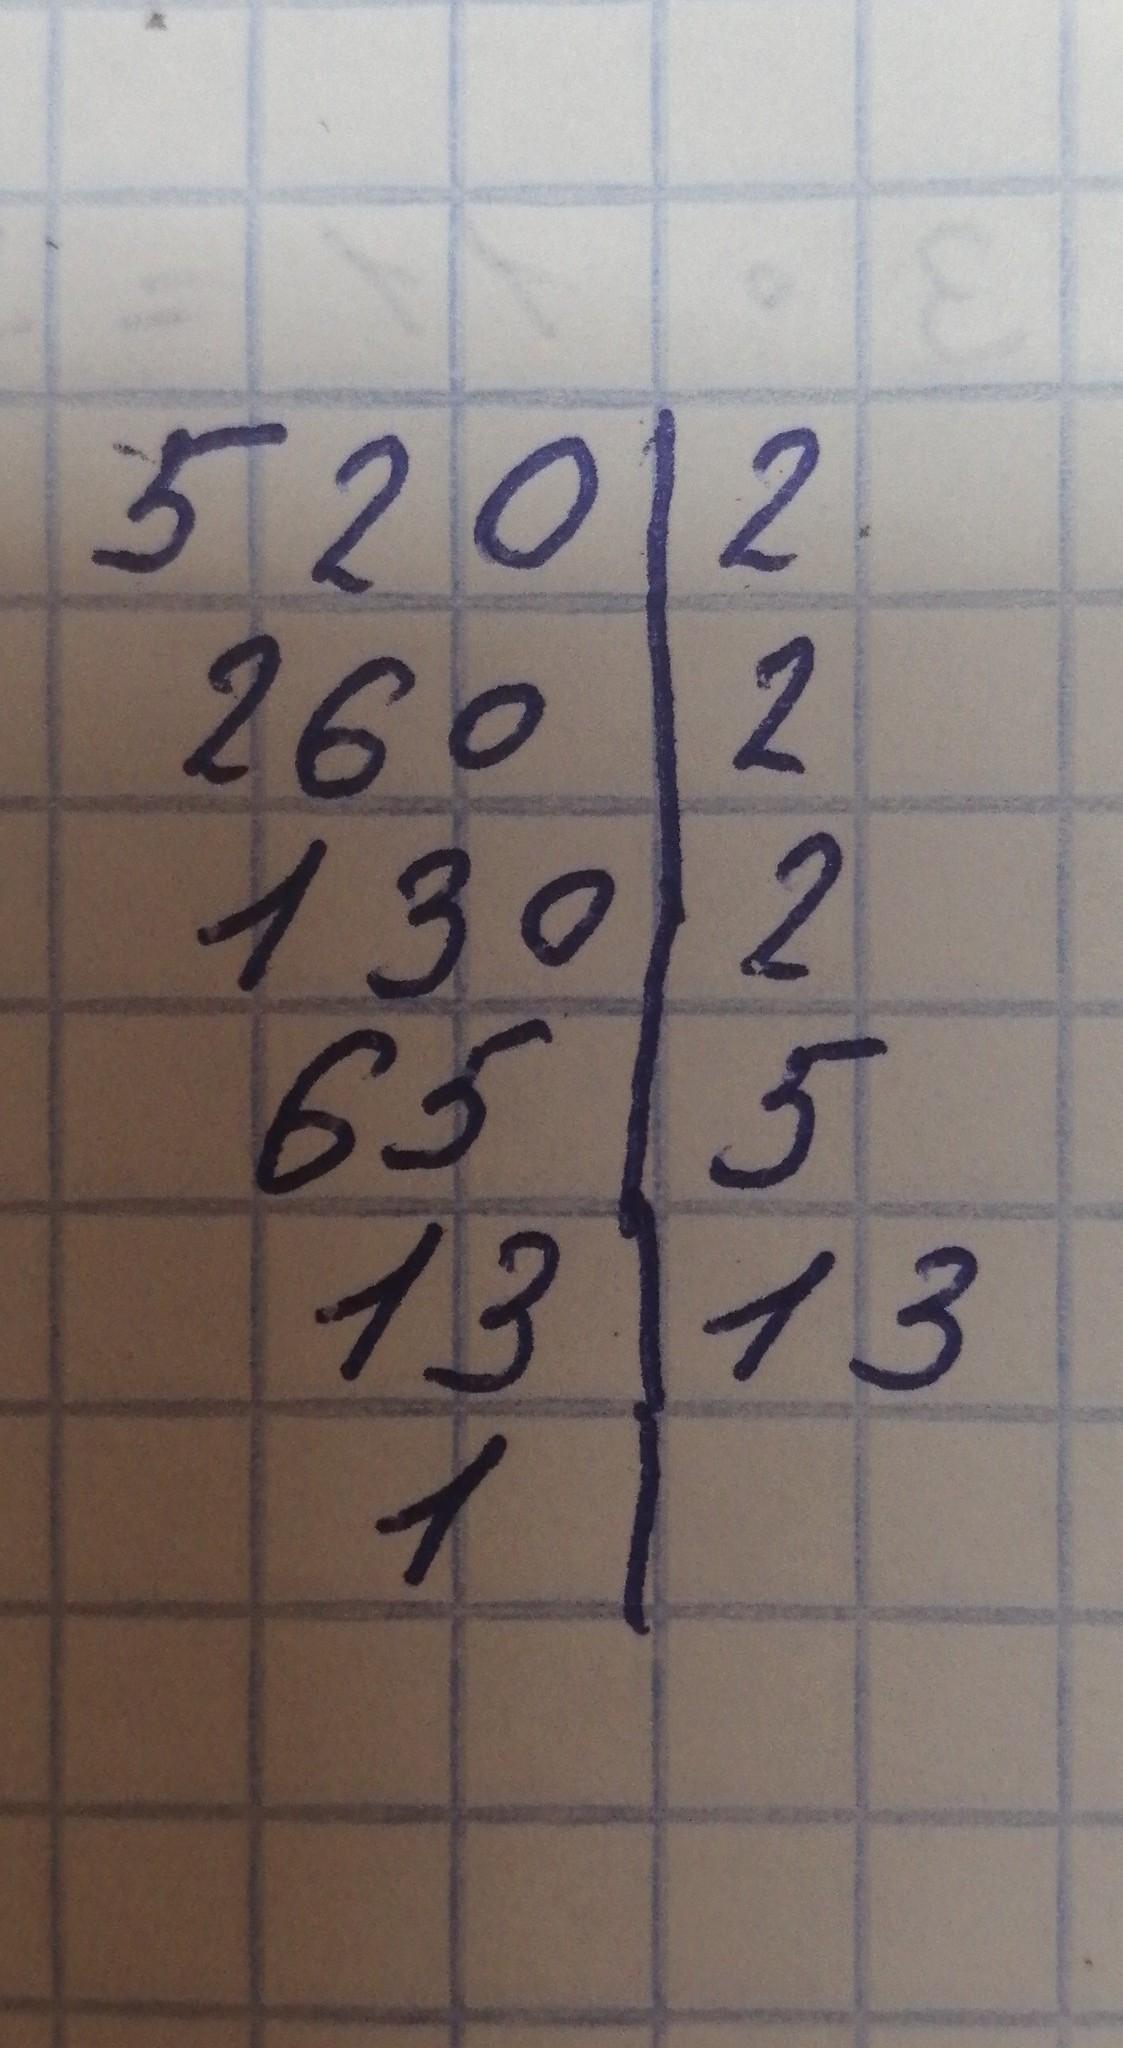 520 | 2
260 | 2
130 | 2
65 | 5
13 | 13
1 |